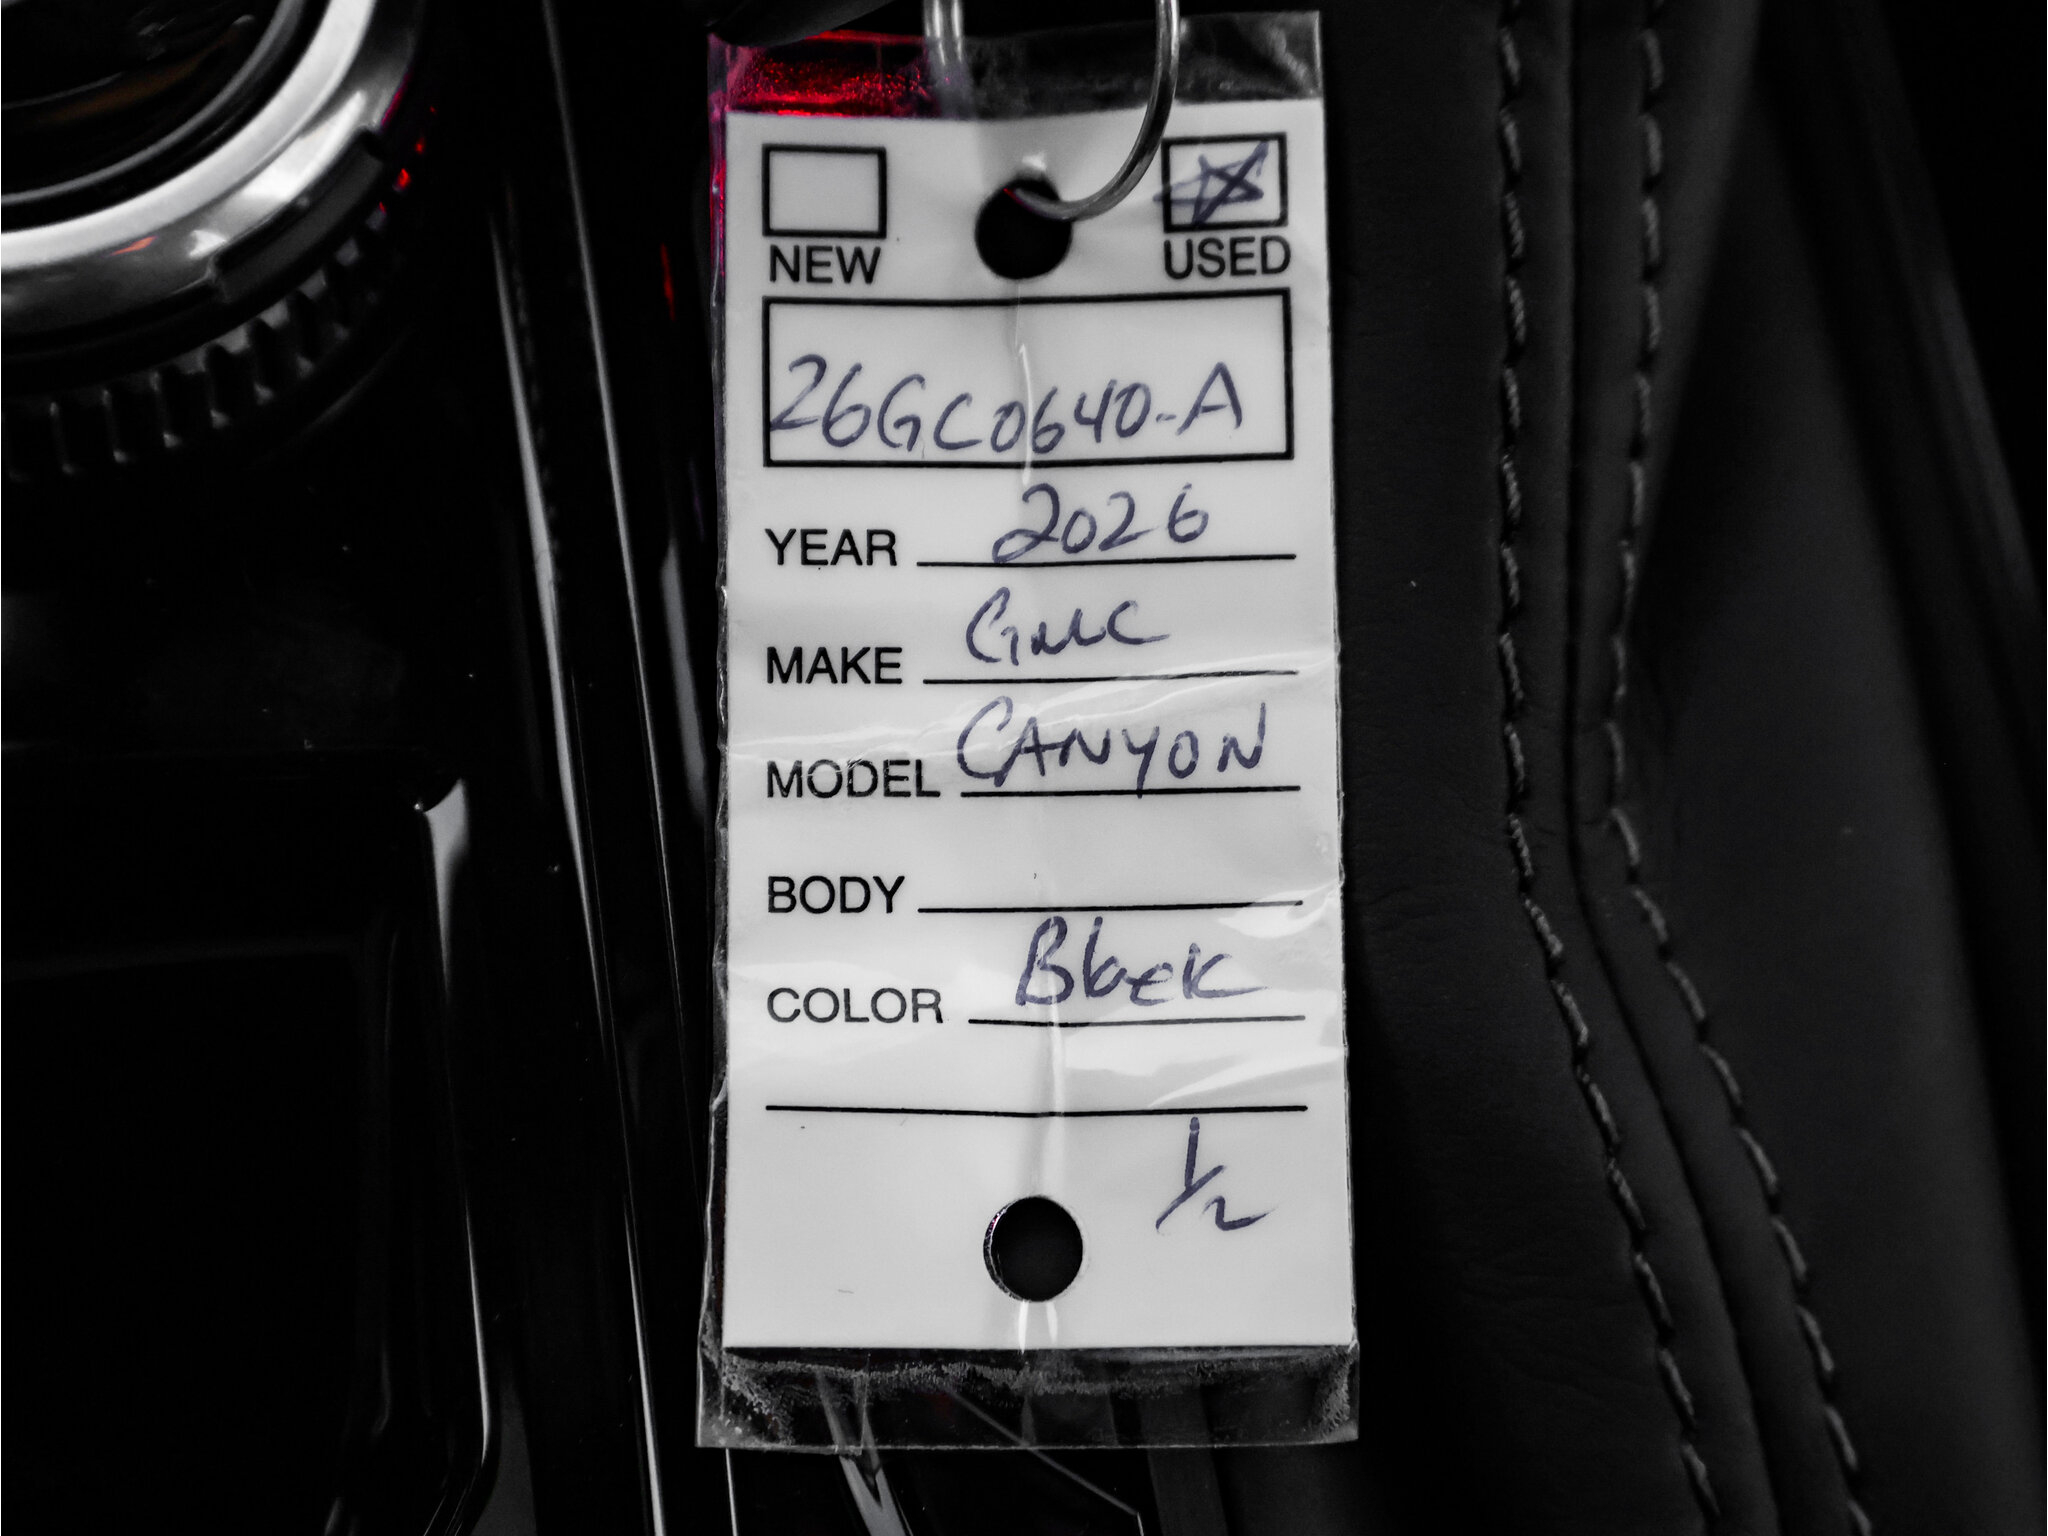 NEW USED
26GC0640-A
YEAR 2026
MAKE GMC
MODEL CANYON
BODY
COLOR Black
1/2